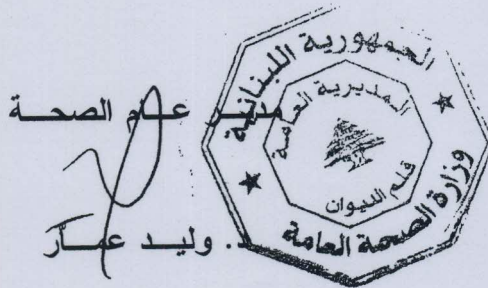 مدير عام الصحة
د. وليد عمار
الجمهورية اللبنانية
وزارة الصحة العامة
المديرية العامة
قلم الديوان